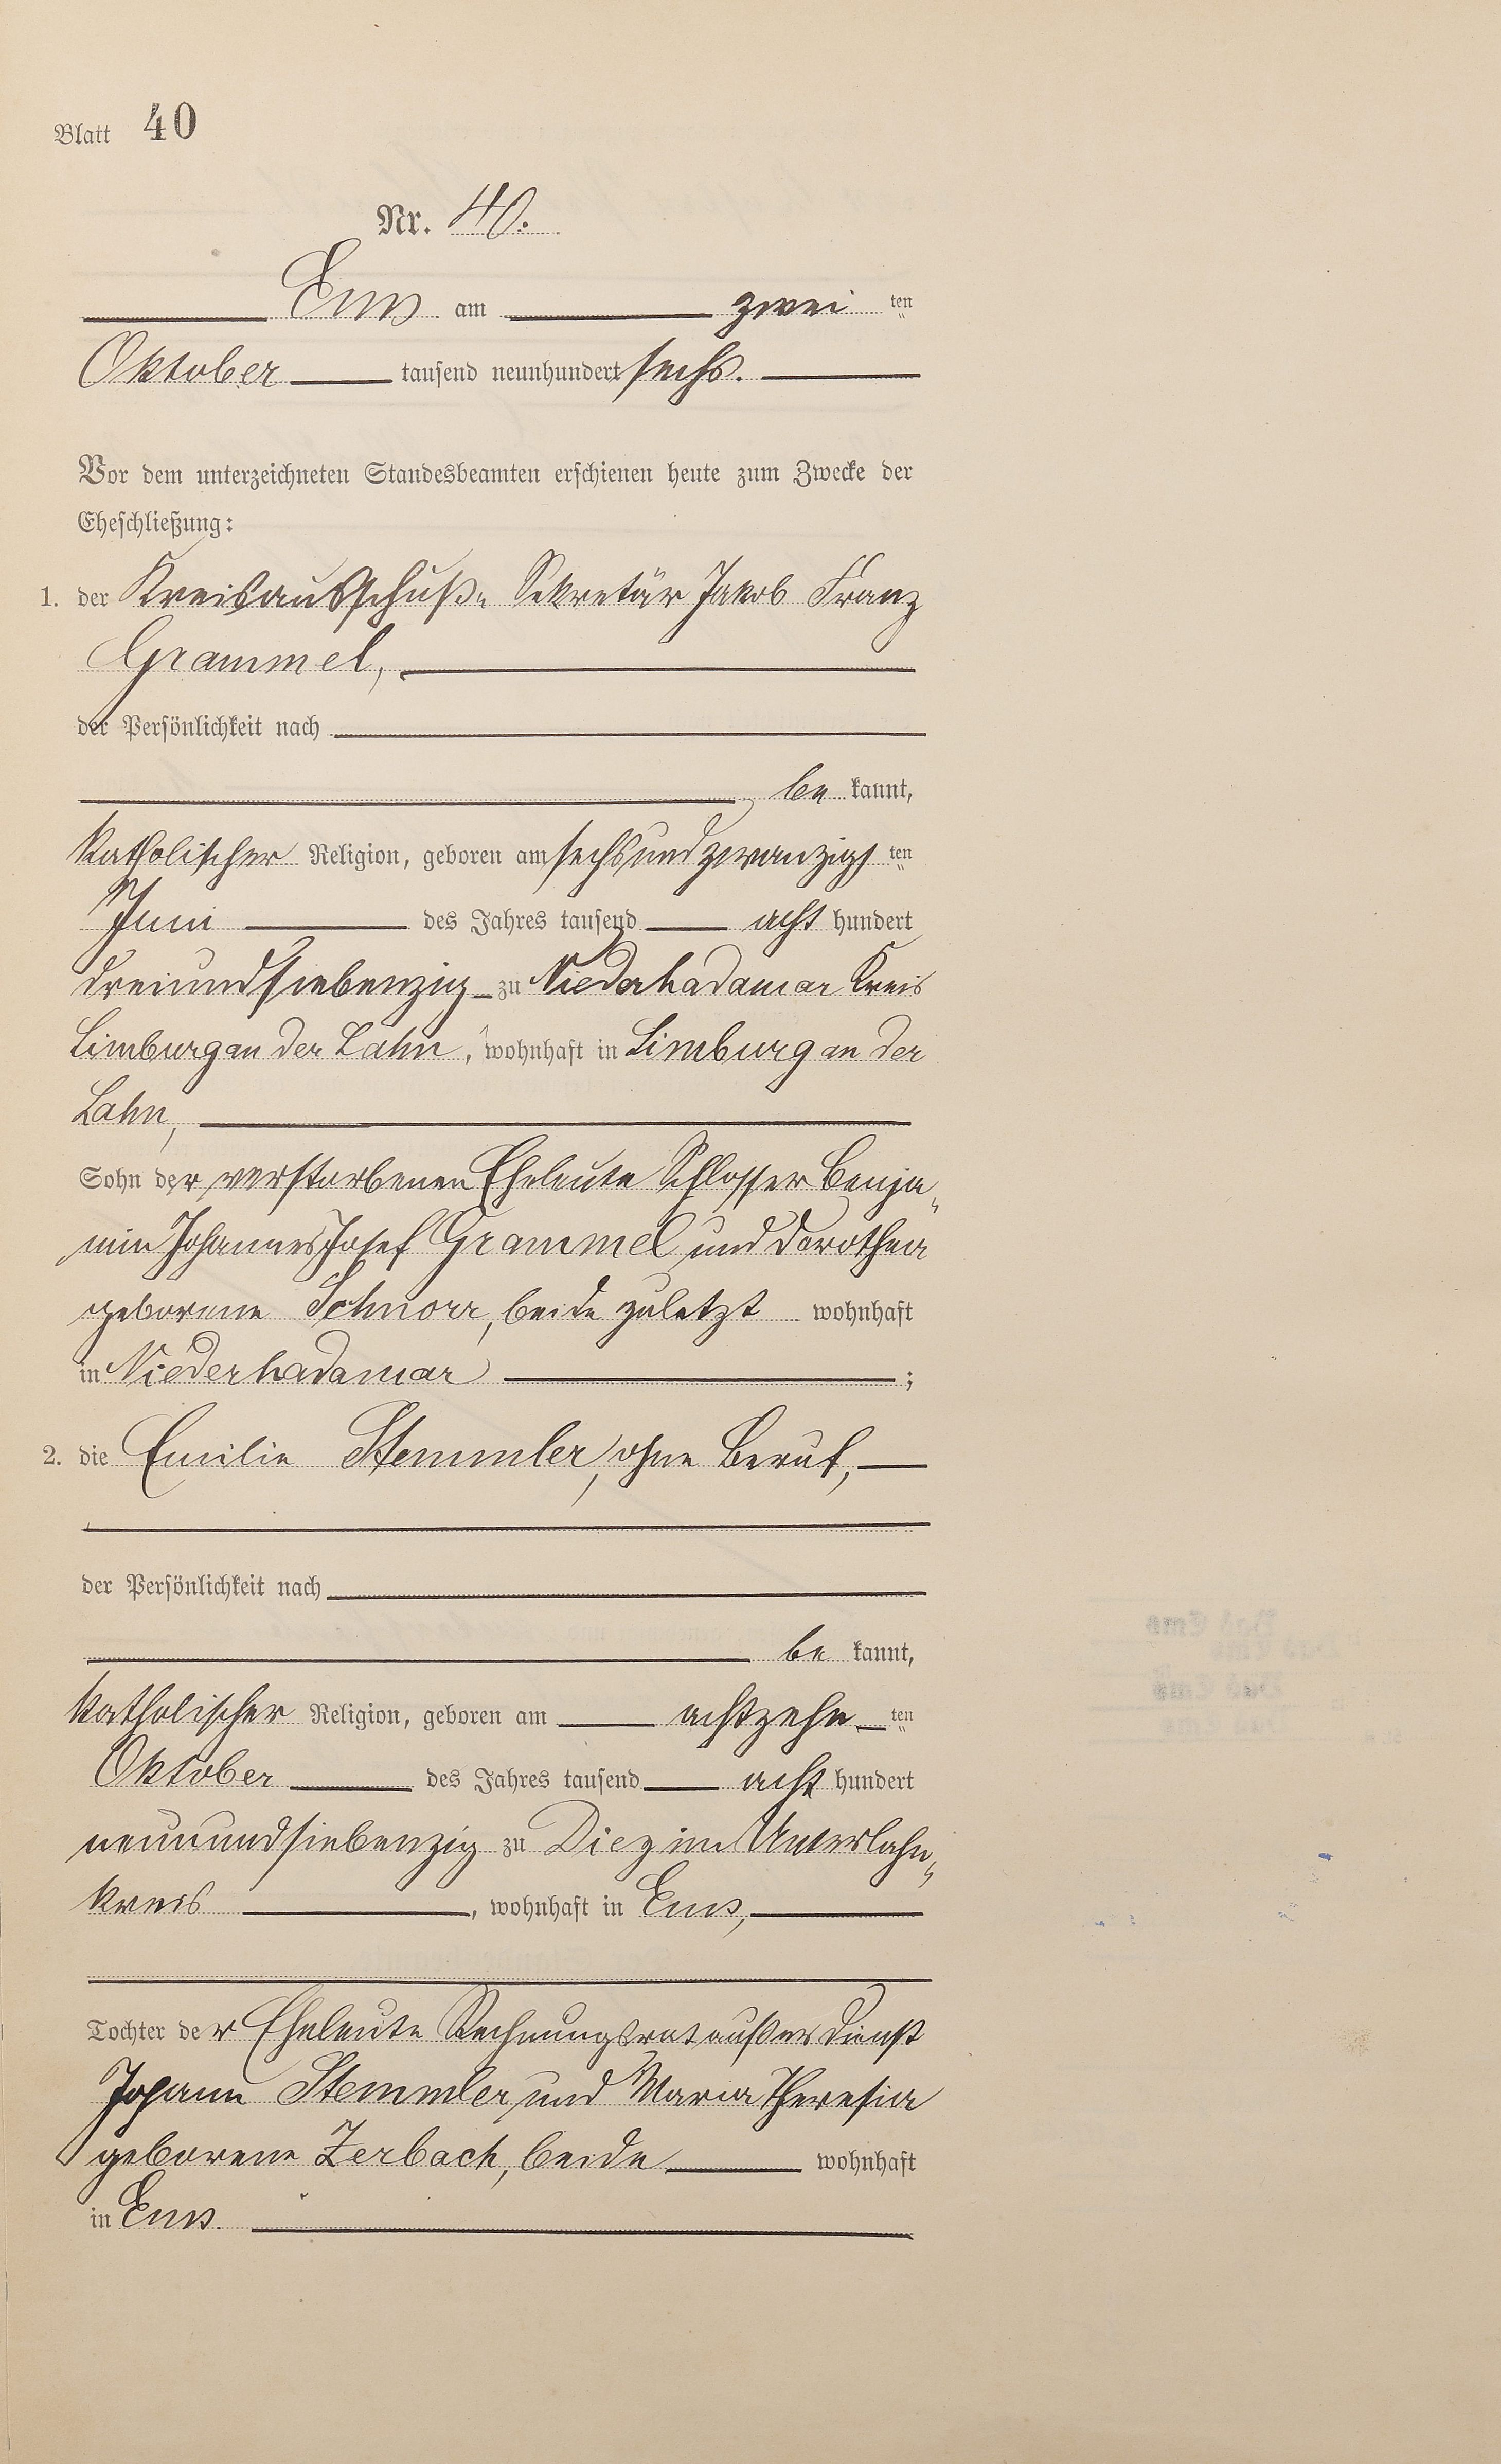 Blatt 40
Nr. 40.
Ems am zwei ten
Oktober tausend neunhundert sechs.
Vor dem unterzeichneten Standesbeamten erschienen heute zum Zwecke der
Eheschließung:
1. der Kreisausschuß- Sekretär Jakob Franz
Grammel,
der Persönlichkeit nach
be kannt,
katholischer Religion, geboren am sechsundzwanzigs ten
Juni des Jahres tausend acht hundert
dreiundsiebenzig zu Niederhadamar Kreis
Limburg an der Lahn, wohnhaft in Limburg an der
Lahn,
Sohn der verstorbenen Eheleute Schlosser Benja-
min Johannes Josef Grammel und Dorothea
geborene Schnorr, beide zuletzt wohnhaft
in Niederhadamar ;
2. die Emilie Stemmler, ohne Beruf,
der Persönlichkeit nach
be kannt,
katholischer Religion, geboren am achtzehn ten
Oktober des Jahres tausend acht hundert
neunundsiebenzig zu Diez im Unterlahn-
kreis , wohnhaft in Ems,
Tochter der Eheleute Rechnungsrat außer Dienst
Johann Stemmler und Maria Theresia
geborene Zerbach, beide wohnhaft
in Ems.